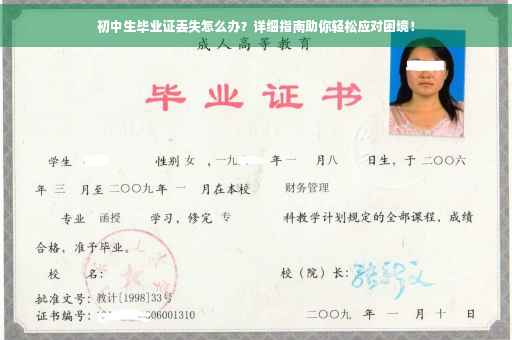 初中生毕业证丢失怎么办？详细指南助你轻松应对困境！
成人高等教育
毕业证书
学生 性别 女 ，一九 年 一 月 八 日生，于 二〇〇六
年 三 月至 二〇〇九 年 一 月在本校 财务管理
专业 函授 学习，修完 专 科教学计划规定的全部课程，成绩
合格，准予毕业。
校 名： 校（院）长：
批准文号：教计[1998]33号
证书编号： 06001310 二〇〇九 年 一 月 十 日